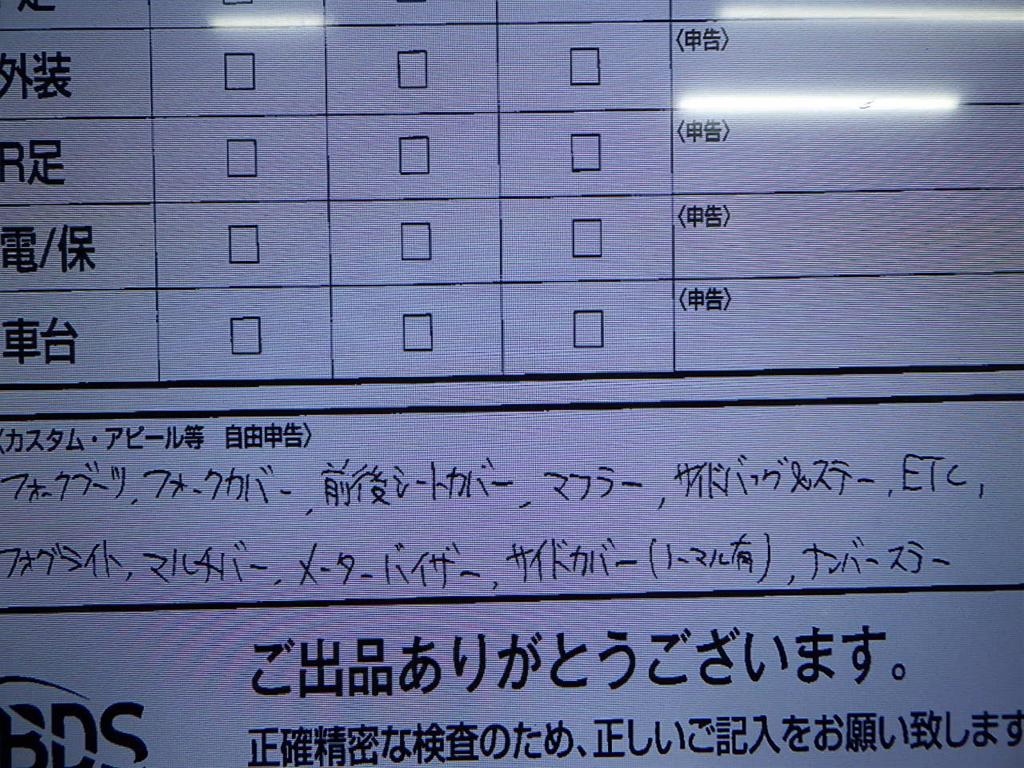 外装 □ □ □ 〈申告〉
R足 □ □ □ 〈申告〉
電/保 □ □ □ 〈申告〉
車台 □ □ □ 〈申告〉
〈カスタム・アピール等 自由申告〉
フォークブーツ, フォークカバー, 前後シートカバー, マフラー, サイドバッグ&ステー, ETC,
フォグライト, マルチバー, メーターバイザー, サイドカバー(ノーマル有), ナンバーステー
ご出品ありがとうございます。
BDS
正確精密な検査のため、正しいご記入をお願い致します